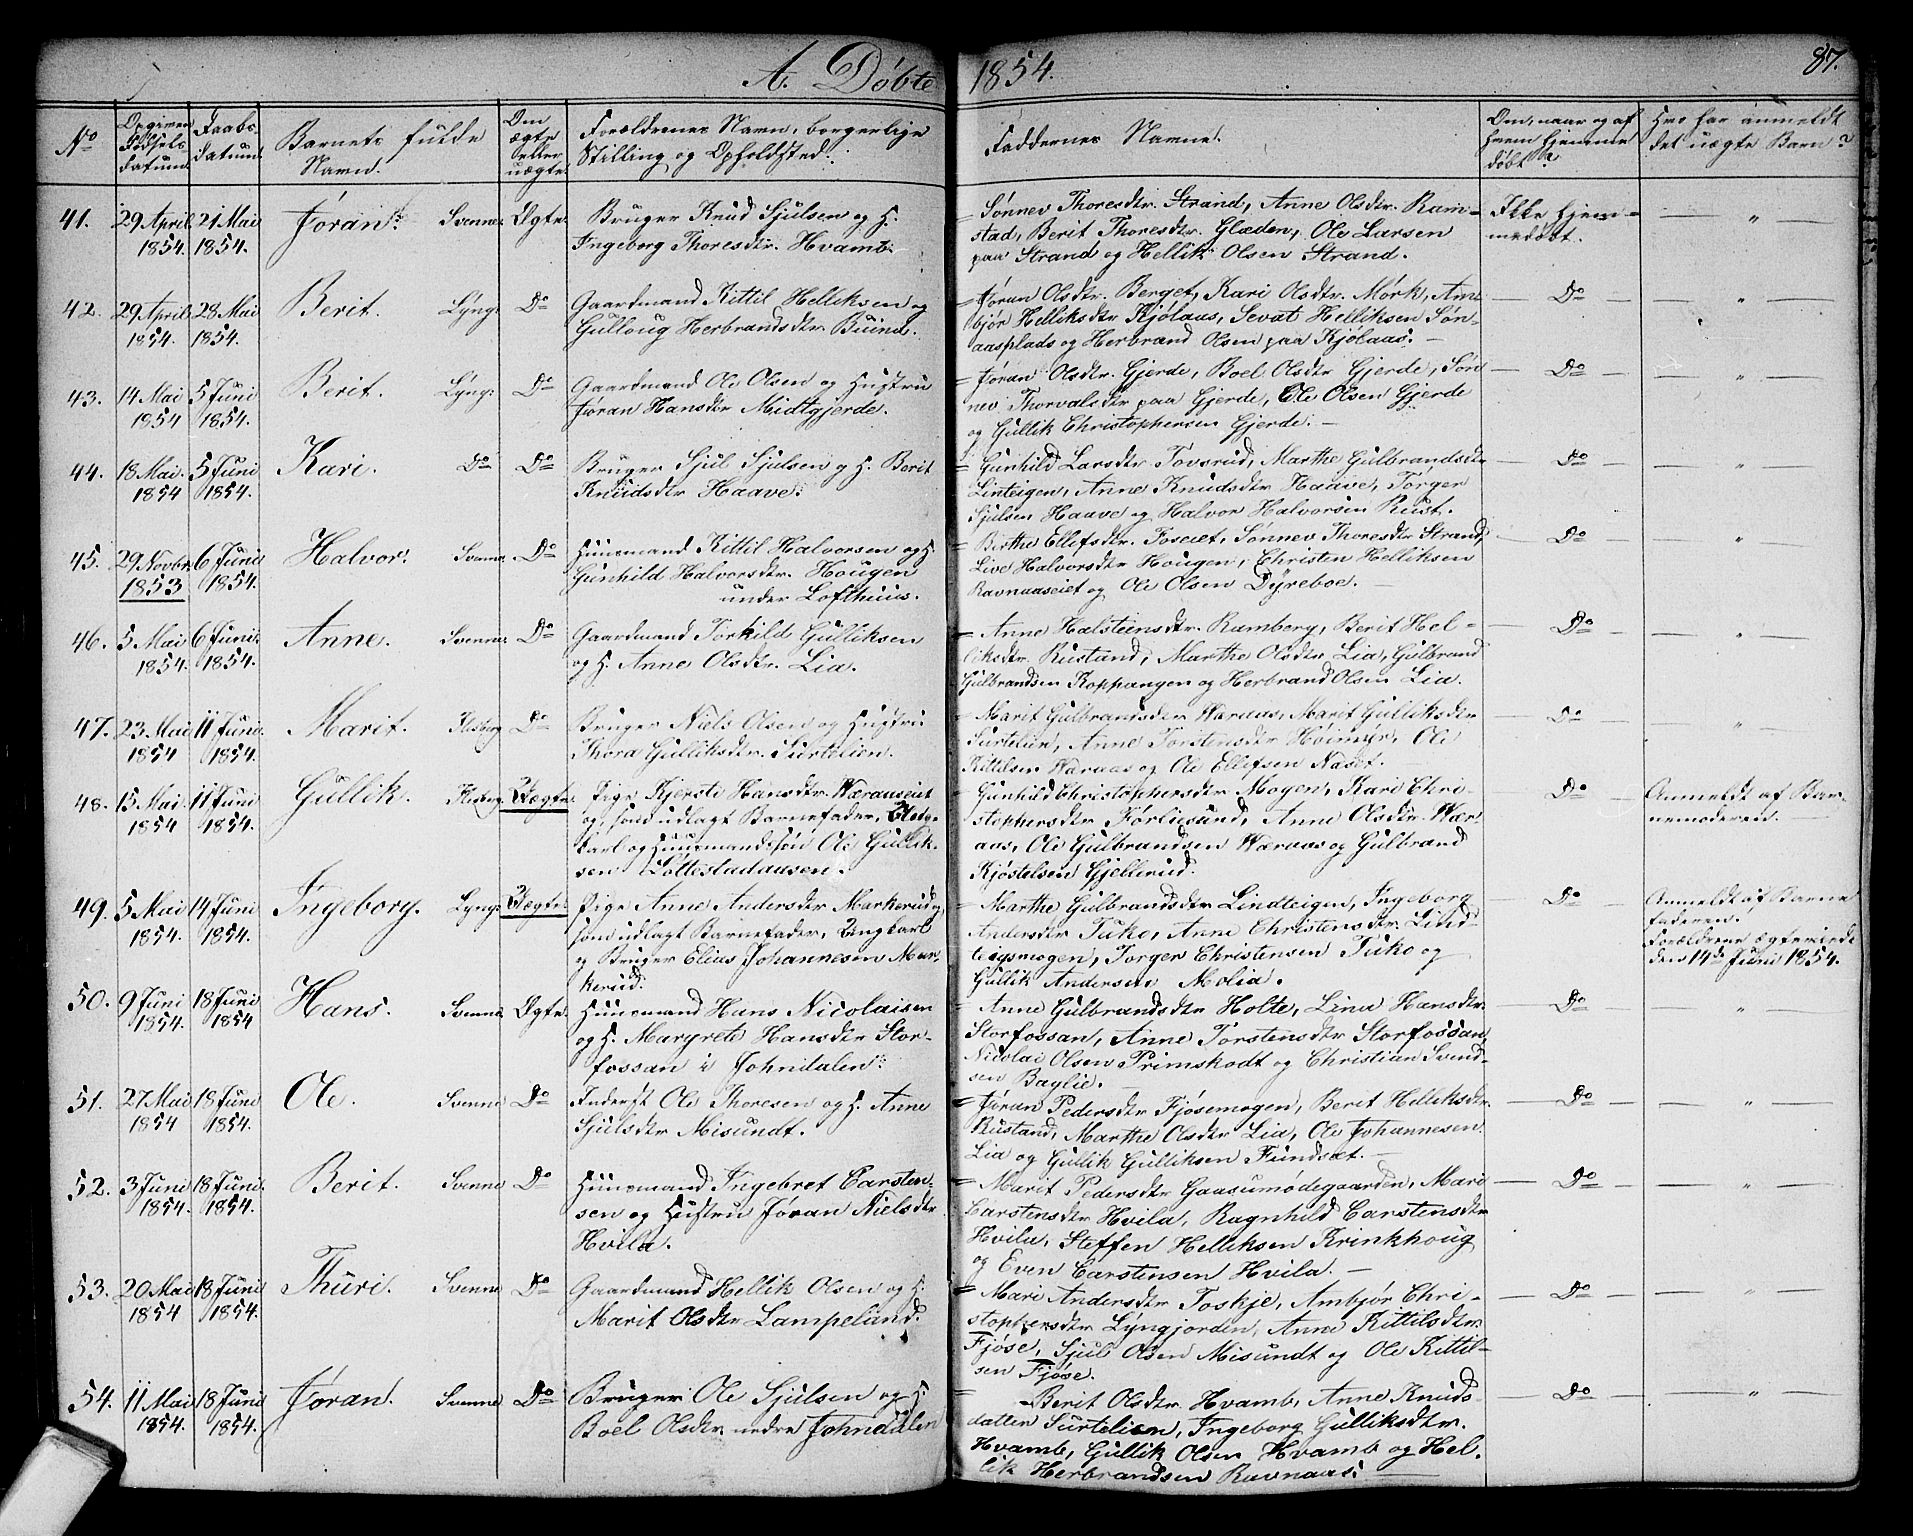 A. Døbte 1854. 87.
No
Opgiven Fødsels datum
Daabs datum
Barnets fulde Navn.
Om ægte eller uægte
Forældrenes Navn, borgerlige Stilling og Opholdsted.
Faddernes Navne.
Om, naar og af hvem hjemmedøbt?
Hvo har anmeldt det uægte Barn?
41. 29 April 1854. 21 Mai 1854. Jøran. Svenne Ægte
Bruger Knud Sjulsen og H.
Ingeborg Thoresdtr. Hvamb.
= Sønnev Thoresdtr. Strand, Anne Olsdtr. Ram-
stad, Berit Thoresdtr. Glæden, Ole Larsen
paa Strand og Hellik Olsen Strand.
Ikke hjem-
medøbt. — " —
42. 29 April 1854. 28 Mai 1854. Berit. Lyng: Do
Gaardmand Kittil Helliksen og
Gulloug Herbrandsdtr Buind.
= Jøran Olsdtr. Berget, Kari Olsdtr. Mørk, Am-
bjør Helliksdtr Kjølaas, Sevat Helliksen Søn-
aasplads og Herbrand Olsen paa Kjølaas. —
— Do — — " —
43. 14 Mai 1854 5 Juni 1854. Berit. Lyng: Do
Gaardmand Ole Olsen og Hustru
Jøran Hansdtr Midtgjerde.
= Jøran Olsdtr. Gjerde, Boel Olsdtr Gjerde, Søn-
nev Thorvalsdtr paa Gjerde, Ole Olsen Gjerde
og Gullik Christophersen Gjerde. —
— Do — — " —
44. 18 Mai. 1854 5 Juni 1854. Kari. Do Do
Bruger Sjul Sjulsen og H. Berit
Knudsdtr Haave.
= Gunhild Larsdtr Tovsrud, Marthe Gulbrandsdtr
Linteigen, Anne Knudsdtr Haave, Torger
Sjulsen Haave og Halvor Halvorsen Rust.
— Do — — " —
45. 29 Novbr. 1853 6 Juni 1854. Halvor. Svenne Do
Huusmand Kittil Halvorsen og H.
Gunhild Halvorsdtr. Hougen
under Lofthuus.
= Birthe Ellefsdtr. Foseiet, Sønnev Thoresdtr Strand,
Live Halvorsdtr Hougen, Christen Helliksen
Ravnaaseiet og Ole Olsen Dyreboe. —
— Do — "
46. 5 Mai 1854. 6 Juni. 1854. Anne. Svenne Do
Gaardmand Torkild Gulliksen
og H. Anne Olsdtr. Lia.
= Anne Halsteinsdtr. Ramberg, Berit Hel-
liksdtr Rustand, Marthe Olsdtr Lia, Gulbrand
Gulbrandsen Koppangen og Herbrand Olsen Lia.
— Do — — " —
47. 23 Mai 1854 11 Juni 1854. Marit. Flesberg Do
Bruger Niels Olsen og Hustru
Thora Gulliksdtr. Surtelien.
= Marit Gulbrandsdtr Væraas, Marit Gulliksdtr
Surtelien, Anne Torstensdtr Høimyr, Ole
Kittilsen Væraas og Ole Ellefsen Naset.
— Do — — " —
48. 15 Mai 1854 11 Juni 1854. Gullik. Flesberg Uægte
Pige Kjersti Hansdtr Væraaseiet
og som udlagt Barnefader, Ung-
karl og Huusmandssøn Ole Gullik-
sen Lottestadausen.
= Gunhild Christophersdtr Mogen, Kari Chri-
stophersdtr Førliesund, Anne Olsdtr Vær-
aas, Ole Gulbrandsen Væraas og Gulbrand
Kjøstelsen Gjellerud.
— Do —
Anmeldt af Bar-
nemoderen.
49. 5 Mai 1854. 14 Juni 1854. Ingeborg. Lyng: Uægte
Pige Anne Andersdtr Markerud og
som udlagt Barnefader, Ungkarl
og Bruger Elias Johannesen Mar-
kerud.
= Marthe Gulbrandsdtr Lindteigen, Ingeborg
Andersdtr Tuko, Anne Christensdtr. Lind-
teigsmogen, Torger Christensen Tuko og
Gullik Andersen Molia.
— Do —
Anmeldt af Barne
faderen.
Forældrene ægteviede
den 14de Juni 1854.
50. 9 Juni 1854. 18 Juni 1854 Hans. Svenne Ægte
Huusmand Hans Nicolaisen
og H. Margrete Hansdtr Stor-
fossan i Johndalen.
= Anne Gulbrandsdtr Holte, Lina Hansdtr
Storfossan, Anne Torstensdtr Storfossan,
Nicolai Olsen Primskodt og Christian Svend-
sen Baglie. —
— Do — "
51. 27 Mai 1854 18 Juni 1854. Ole. Svenne Do
Inderst Ole Thoresen og H. Anne
Sjulsdtr Misundt.
= Jøran Pedersdtr Fjøsemogen, Berit Helliksdtr.
Rustand, Marthe Olsdtr Lia, Ole Johannesen
Lia og Gullik Gulliksen Fundsæt. —
— Do — — " —
52. 3 Juni 1854. 18 Juni 1854. Berit. Svenne Do
Huusmand Ingebret Carsten-
sen og Hustru Jøran Nielsdtr
Hvila.
= Marit Pedersdtr Gaasumødegaarden, Mari
Carstensdtr Hvila, Ragnhild Carstensdtr
Hvila, Steffen Helliksen Krinkhoug
og Even Carstensen Hvila. —
— Do — — " —
53. 20 Mai 1854 18 Juni 1854. Thuri. Svenne Do
Gaardmand Hellik Olsen og H.
Marit Olsdtr Lampeland.
= Mari Andersdtr Toskje, Ambjør Chri-
stophersdtr Lyngjorden, Anne Kittilsdtr
Fjøse, Sjul Olsen Misundt og Ole Kittil-
sen Fjøse.
— Do — — " —
54. 11 Mai 1854. 18 Juni 1854. Jøran. Svenne Do
Bruger Ole Sjulsen og H.
Boel Olsdtr nedre Johndalen
= Berit Olsdtr Hvamb, Anne Knuds-
datter Surtelien, Ingeborg Gulliksdtr.
Hvamb, Gullik Olsen Hvamb og Hel-
lik Herbrandsen Ravnaas.
— Do — — " —